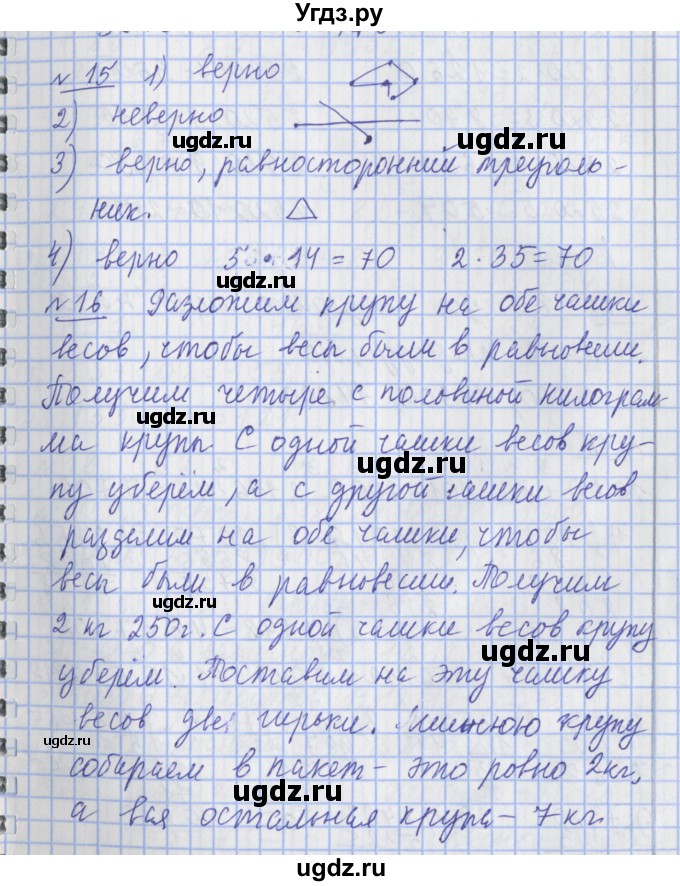 Угдз.ру
№ 15 1) верно
ugdz.ru
2) неверно
ugdz.ru
ugdz.ru
3) верно, равносторонний треуголь-
ник.
4) верно 5 · 14 = 70 2 · 35 = 70
ugdz.ru
№ 16 Разложим крупу на обе чашки
весов, чтобы весы были в равновесии.
ugdz.ru
Получим четыре с половиной килограм-
ugdz.ru
ма крупы. С одной чашки весов кру-
ugdz.ru
пу уберём, а с другой чашки весов
разделим на обе чашки, чтобы
весы были в равновесии. Получим
ugdz.ru
2 кг 250г. С одной чашки весов крупу
ugdz.ru
уберём. Поставим на эту чашку
весов две гирьки. Лишнюю крупу
ugdz.ru
собираем в пакет - это ровно 2кг,
ugdz.ru
а вся остальная крупа - 7 кг.
ugdz.ru